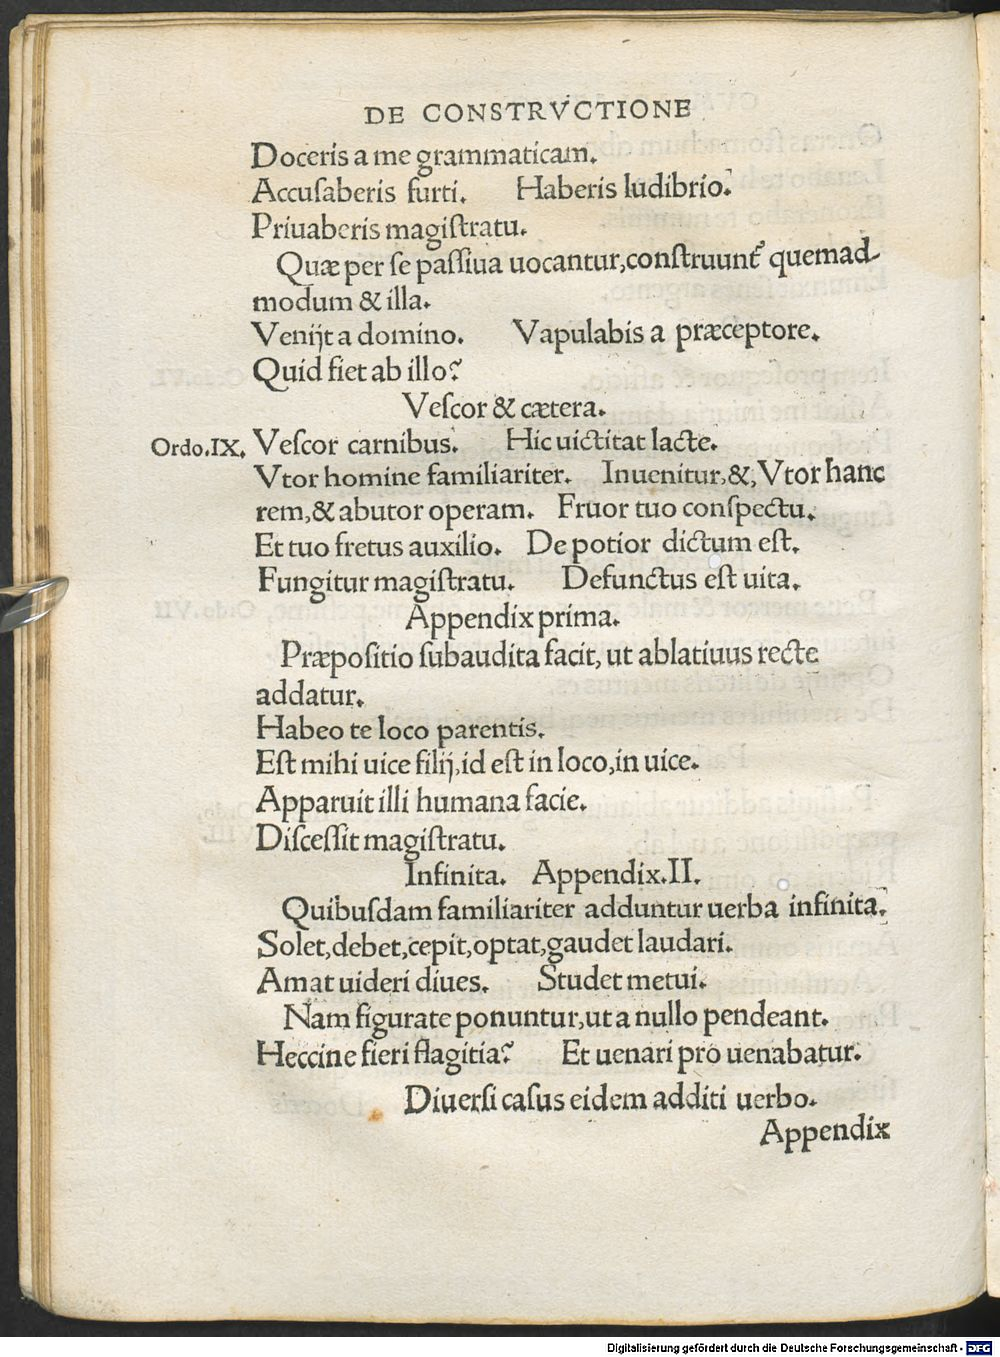 DE CONSTRVCTIONE
Doceris a me grammaticam.
Accuſaberis furti. Haberis ludibrio.
Priuaberis magiſtratu.
Quæ per ſe paſſiua uocantur, conſtruunt᷑ quemad-
modum & illa.
Venijt a domino. Vapulabis a præceptore.
Quid fiet ab illo?
Veſcor & cætera.
Ordo.IX. Veſcor carnibus. Hic uictitat lacte.
Vtor homine familiariter. Inuenitur,&, Vtor hanc
rem,& abutor operam. Fruor tuo conſpectu.
Et tuo fretus auxilio. De potior dictum eſt.
Fungitur magiſtratu. Defunctus eſt uita.
Appendix prima.
Præpoſitio ſubaudita facit, ut ablatiuus recte
addatur.
Habeo te loco parentis.
Eſt mihi uice filij, id eſt in loco, in uice.
Apparuit illi humana facie.
Diſceſſit magiſtratu.
Infinita. Appendix.II.
Quibuſdam familiariter adduntur uerba infinita.
Solet, debet, cepit, optat, gaudet laudari.
Amat uideri diues. Studet metui.
Nam figurate ponuntur, ut a nullo pendeant.
Heccine fieri flagitia? Et uenari pro uenabatur.
Diuerſi caſus eidem additi uerbo.
Appendix
Digitalisierung gefördert durch die Deutsche Forschungsgemeinschaft - DFG